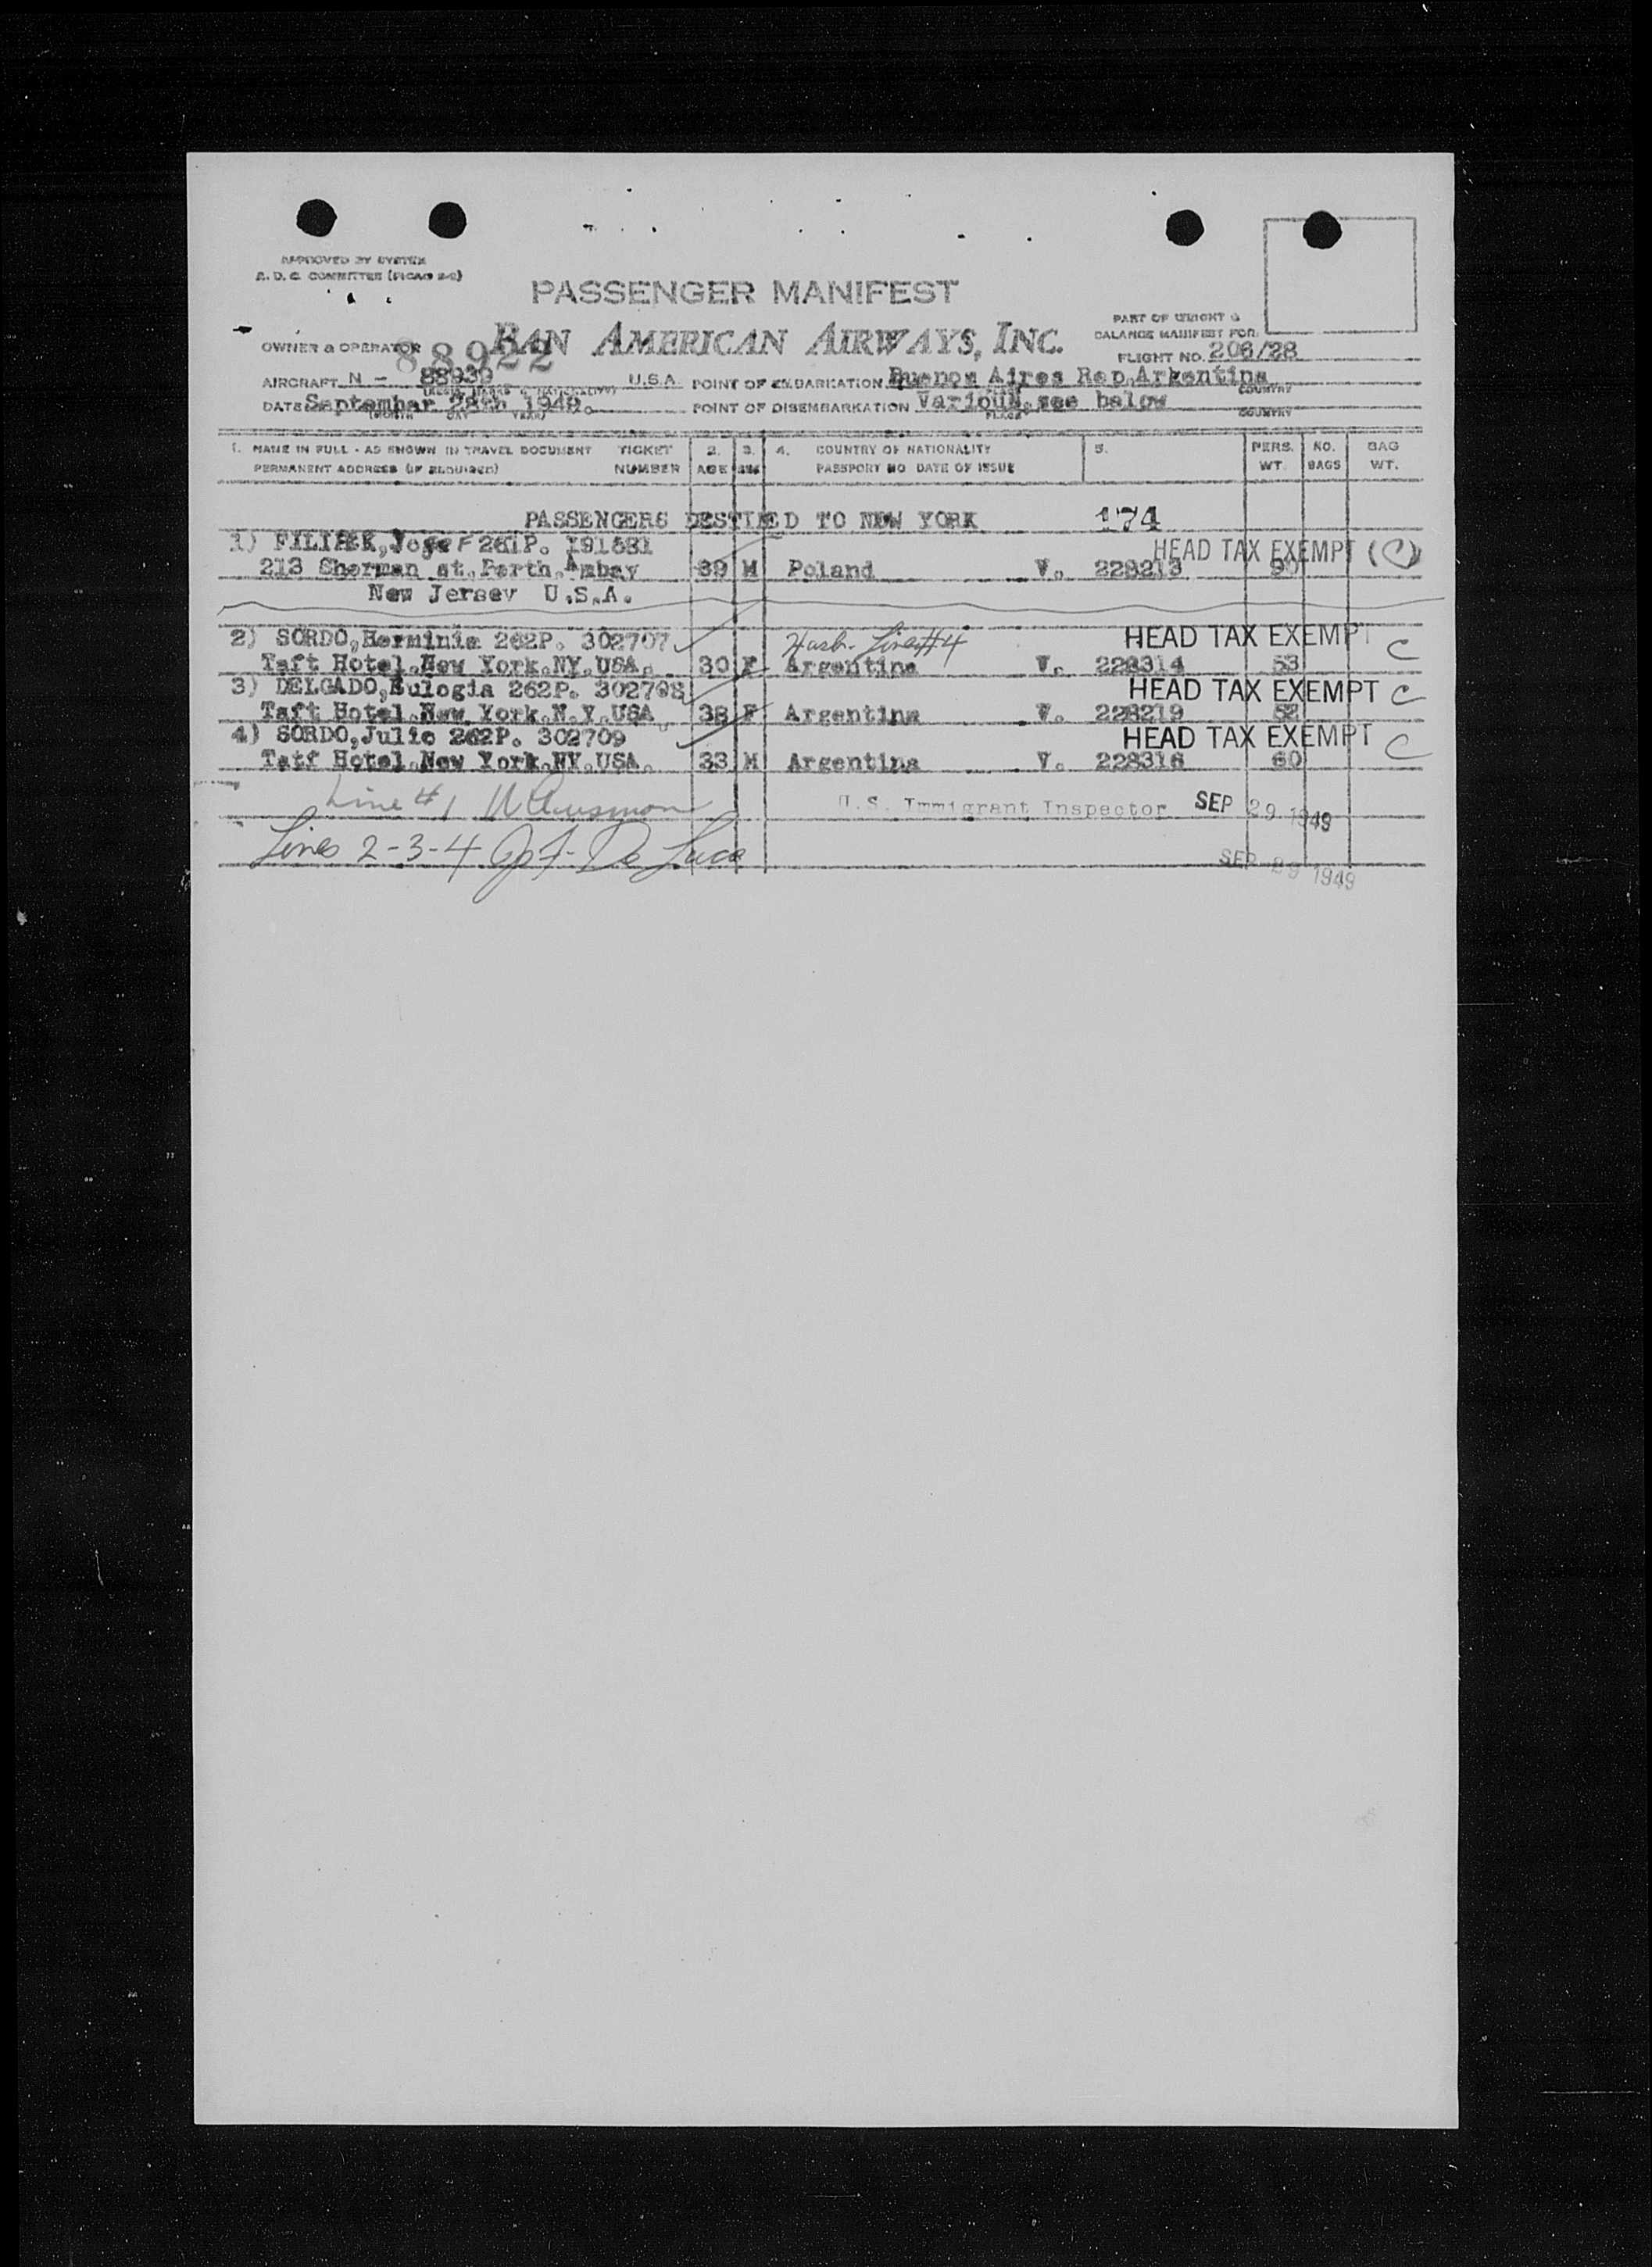 APPROVED BY SYSTEM
A. D. C. COMMITTEE (PICAO 2-2)
PASSENGER MANIFEST
PART OF WEIGHT &
BALANCE MANIFEST FOR
OWNER & OPERATOR PAN AMERICAN AIRWAYS, INC.
88922
FLIGHT NO. 206/28
AIRCRAFT N - 88939 U.S.A. POINT OF EMBARKATION Buenos Aires Rep.Argentina
COUNTRY
DATE September 28th 1949. POINT OF DISEMBARKATION Various, see below
(MONTH DAY YEAR) PLACE COUNTRY
1. NAME IN FULL - AS SHOWN IN TRAVEL DOCUMENT TICKET 2. 3. 4. COUNTRY OF NATIONALITY 5. PERS. NO. BAG
PERMANENT ADDRESS (IF REQUIRED) NUMBER AGE SEX PASSPORT NO DATE OF ISSUE WT. BAGS WT.
PASSENGERS DESTINED TO NEW YORK 174
1) FILIPEK, Josef 261P. 191581 HEAD TAX EXEMPT (C)
213 Sherman st.Perth Ambay 39 M Poland V. 228213 90
New Jersey U.S.A.
2) SORDO,Herminia 262P. 302707 Husb. Line #4 HEAD TAX EXEMPT C
Taft Hotel.New York.NY.USA. 30 F Argentina V. 228314 53
3) DELGADO,Eulogia 262P. 302708 HEAD TAX EXEMPT C
Taft Hotel.New York.N.Y.USA. 38 F Argentina V. 228219 52
4) SORDO,Julio 262P. 302709 HEAD TAX EXEMPT C
Tatf Hotel.New York.NY.USA. 33 M Argentina V. 228316 60
Line #1 U.S. Immigrant Inspector SEP 29 1949
Lines 2-3-4 De Luca
SEP 29 1949